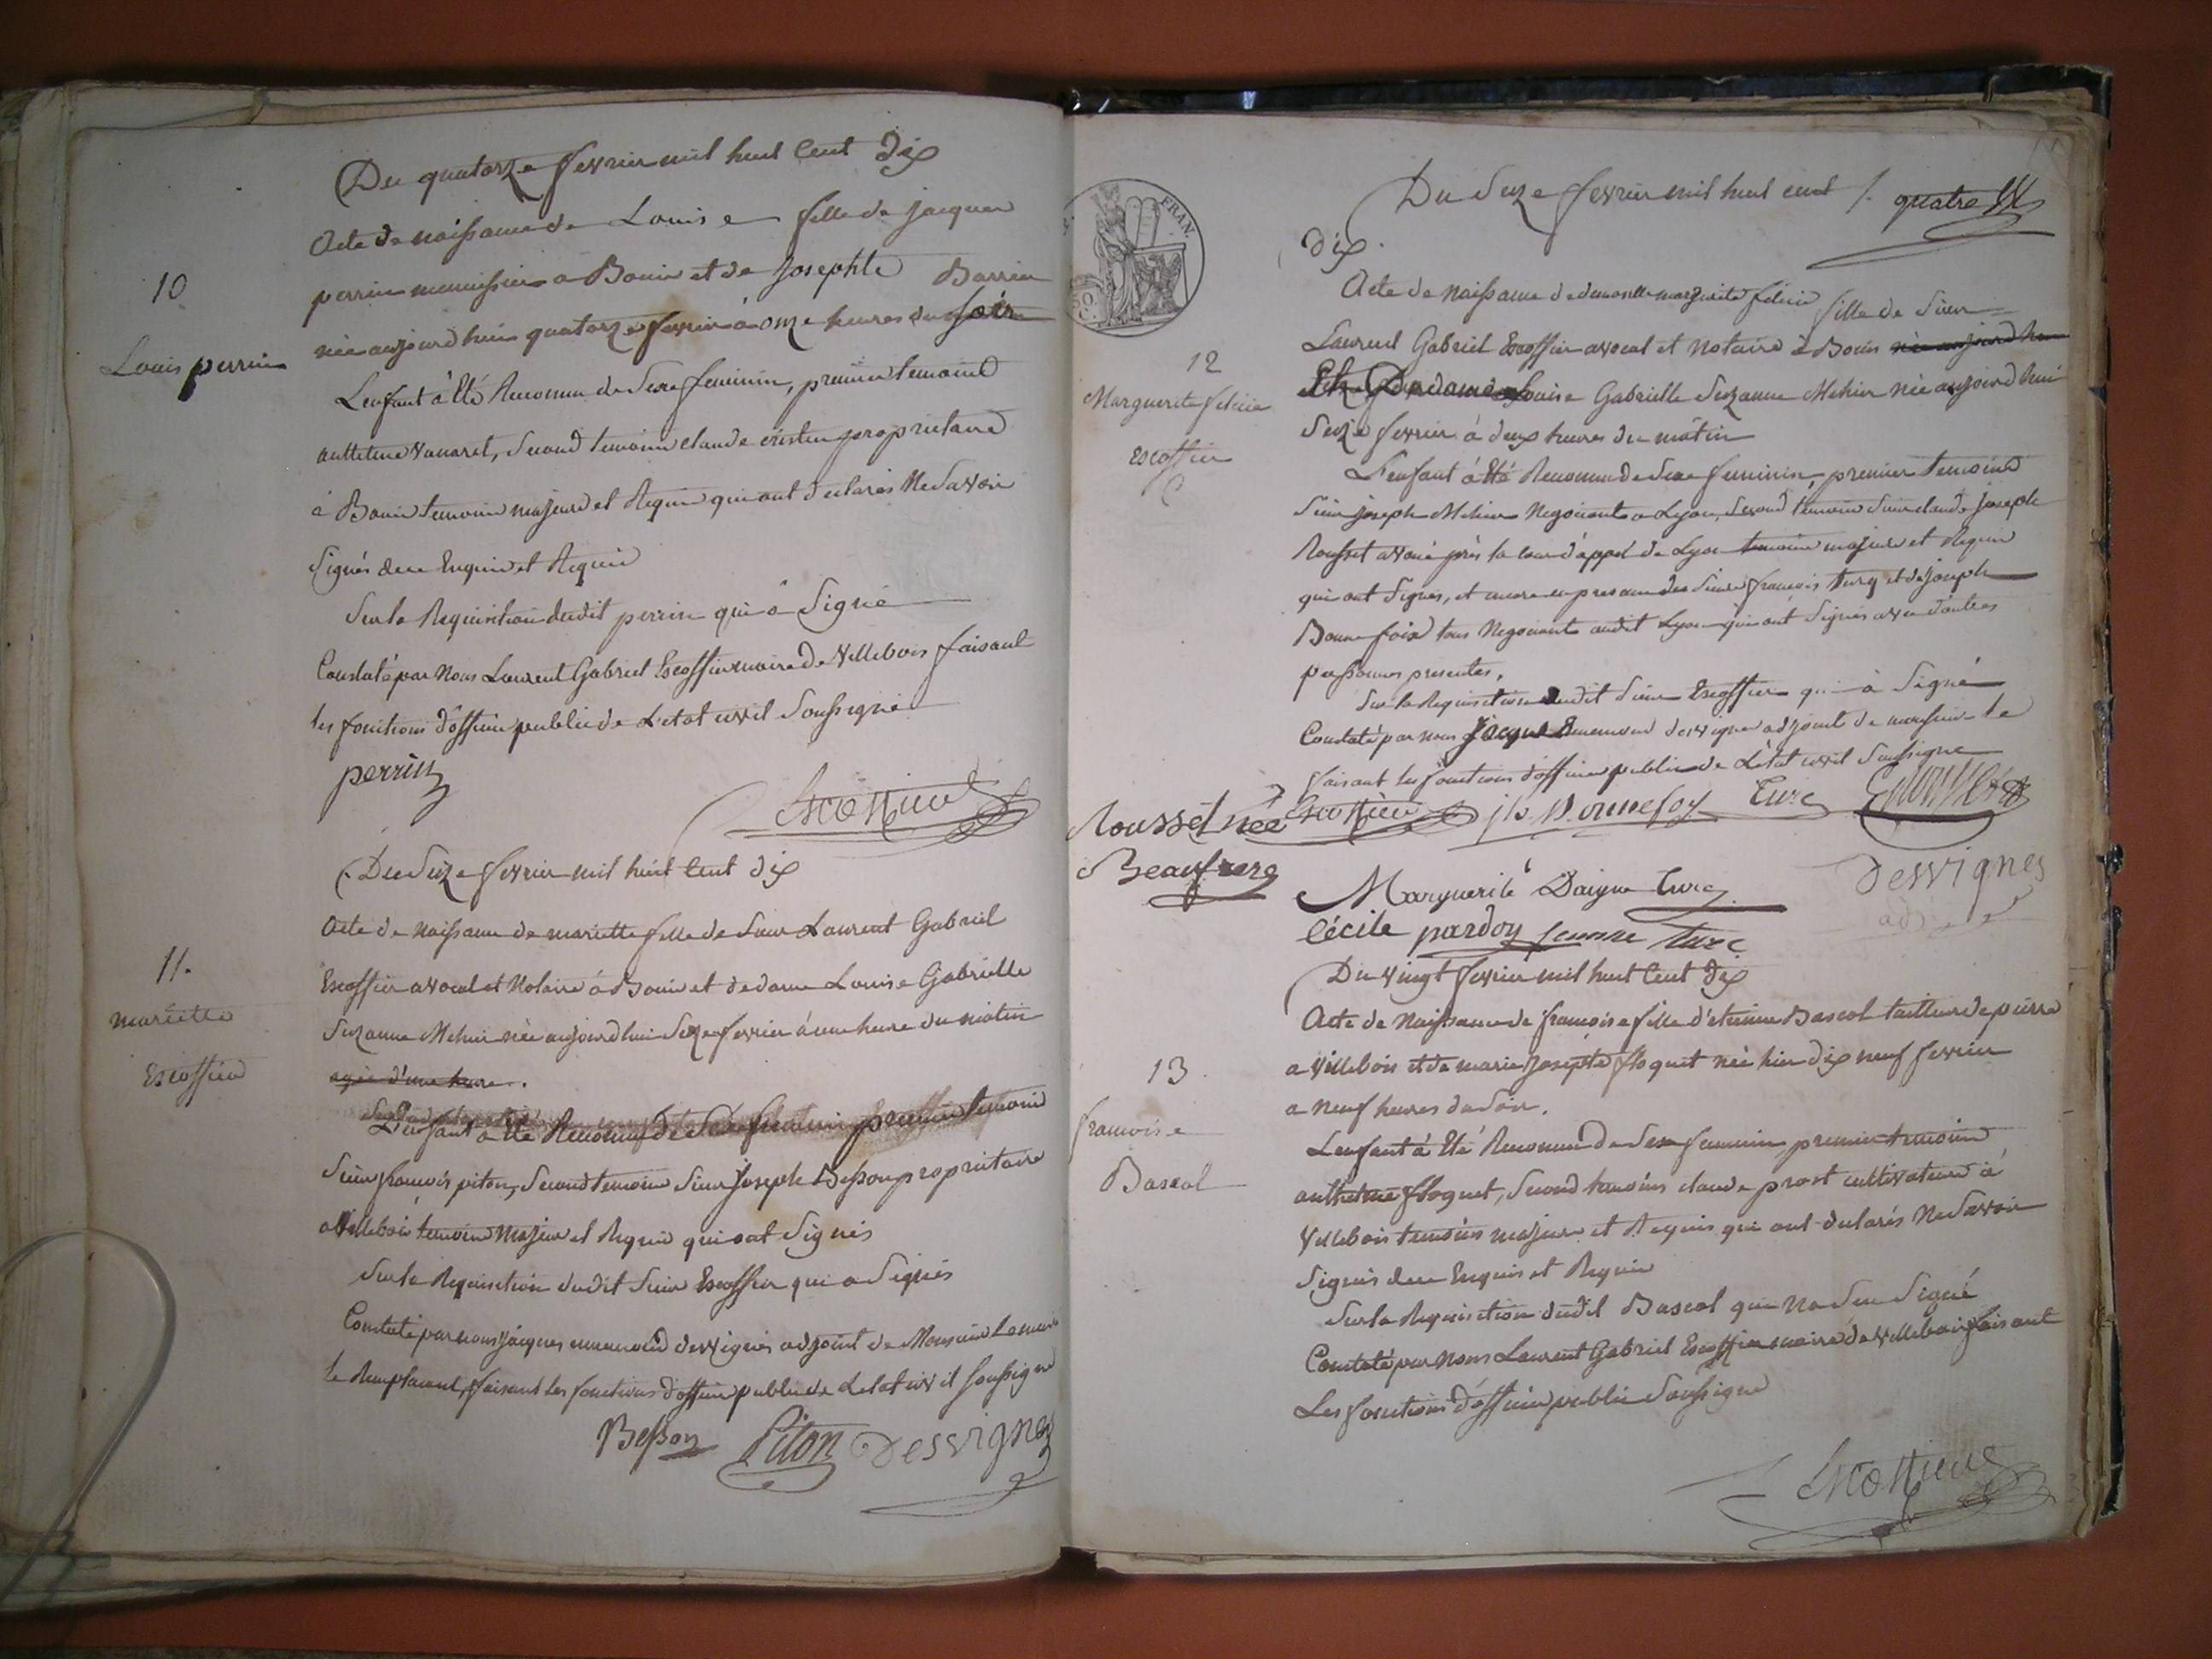 Du quatorze fevrier mil huit Cent dix
10
Louis perrin
Acte de naissance de Louise fille de jacques
perrin menuisier a Bouis et de Josephte Barrin
née aujourdhuis quatorze fevrier à onze heures du soir
L'enfant à Eté Reconnu de Sexe feminin, premier temoins
anthelme vanaret, second temoins claude cristin proprietaire
à Bouis temoins majeurs et Requis qui ont declarés Ne Savoir
Signés de ce Enquis et Requis
Sur la Requisition dudit perrin qui à Signé
Constaté par Nous Laurent Gabriel Escoffier maire de Villebois faisant
les fonctions d'officier public de L'etat civil Soussigné
perrin
Escoffier
Du Seize fevrier mil huit Cent dix
11.
mariette
Escoffier
Acte de Naissance de mariette fille de Sieur Laurent Gabriel
Escoffier avocat et Notaire à Bouis et de dame Louise Gabrielle
Suzanne Mehier née aujourdhui Seize fevrier à une heure du matin
agée d'une heure.
L'enfant a Eté Reconnu de Sexe feminin premier temoins
Sieur francois piton, Second temoins Sieur Joseph Besson proprietaire
a Villebois temoins Majeurs et Requis qui ont Signés
Sur la Requisition dudit Sieur Escoffier qui a Signés
Constaté par nous Jacques ennemond desvignes adjoint de Monsieur Le maire
le Remplacant, faisant les fonctions d'officier public de Letat civil Soussigné
Besson Piton Desvignes
Du Seize fevrier mil huit cent quatre
dix
12
Marguerite felicie
Escoffier
Acte de Naissance de demoiselle marguerite félicie fille de Sieur
Laurent Gabriel Escoffier avocat et Notaire à Bouis née aujourdhui
Et De dame Louise Gabrielle Suzanne Mehier née aujourdhui
Seize fevrier à deux heures du matin
L'enfant à Eté Reconnu de Sexe feminin, premier temoins
Sieur joseph Mehier Negociant a Lyon, Second temoins Sieur claude Joseph
Rousset avoué près la cour d'appel de Lyon temoins majeurs et Requis
qui ont Signés, et encore en presence des Sieurs francois Turq et de joseph
Bonnefoix tous Negociants audit Lyon qui ont Signés avec d'autres
personnes presentes.
Sur la Requisition dudit Sieur Escoffier qui à Signé
Constaté par nous Jacque Ennemond desvigne adjoint de monsieur le
faisant les fonctions d'officier public de L'etat civil Soussigné
Rousset née Escoffier Jh Bonnefoy Turc
Beaufrere
Desvignes
adj
Marguerite Daigue Turc
Cécile pardon femme Turc
Du Vingt fevrier mil huit Cent dix
13
francoise
Bascol
Acte de Naissance de francoise fille d'etienne Bascol tailleur de pierre
a Villebois et de marie Josepte floquet née hier dix neuf fevrier
a neuf heures du Soir.
L'enfant à Eté Reconnu de Sexe feminin premier temoins
anthelme floquet, Second temoins claude prost cultivateurs à
Villebois temoins majeurs et Requis qui ont declarés Ne Savoir
Signés de ce Enquis et Requis
Sur la Requisition dudit Bascol qui Na Seu Signé
Constaté par Nous Laurent Gabriel Escoffier maire de Villebois faisant
Les fonctions d'officier public Soussigné
Escoffier
FRAN.